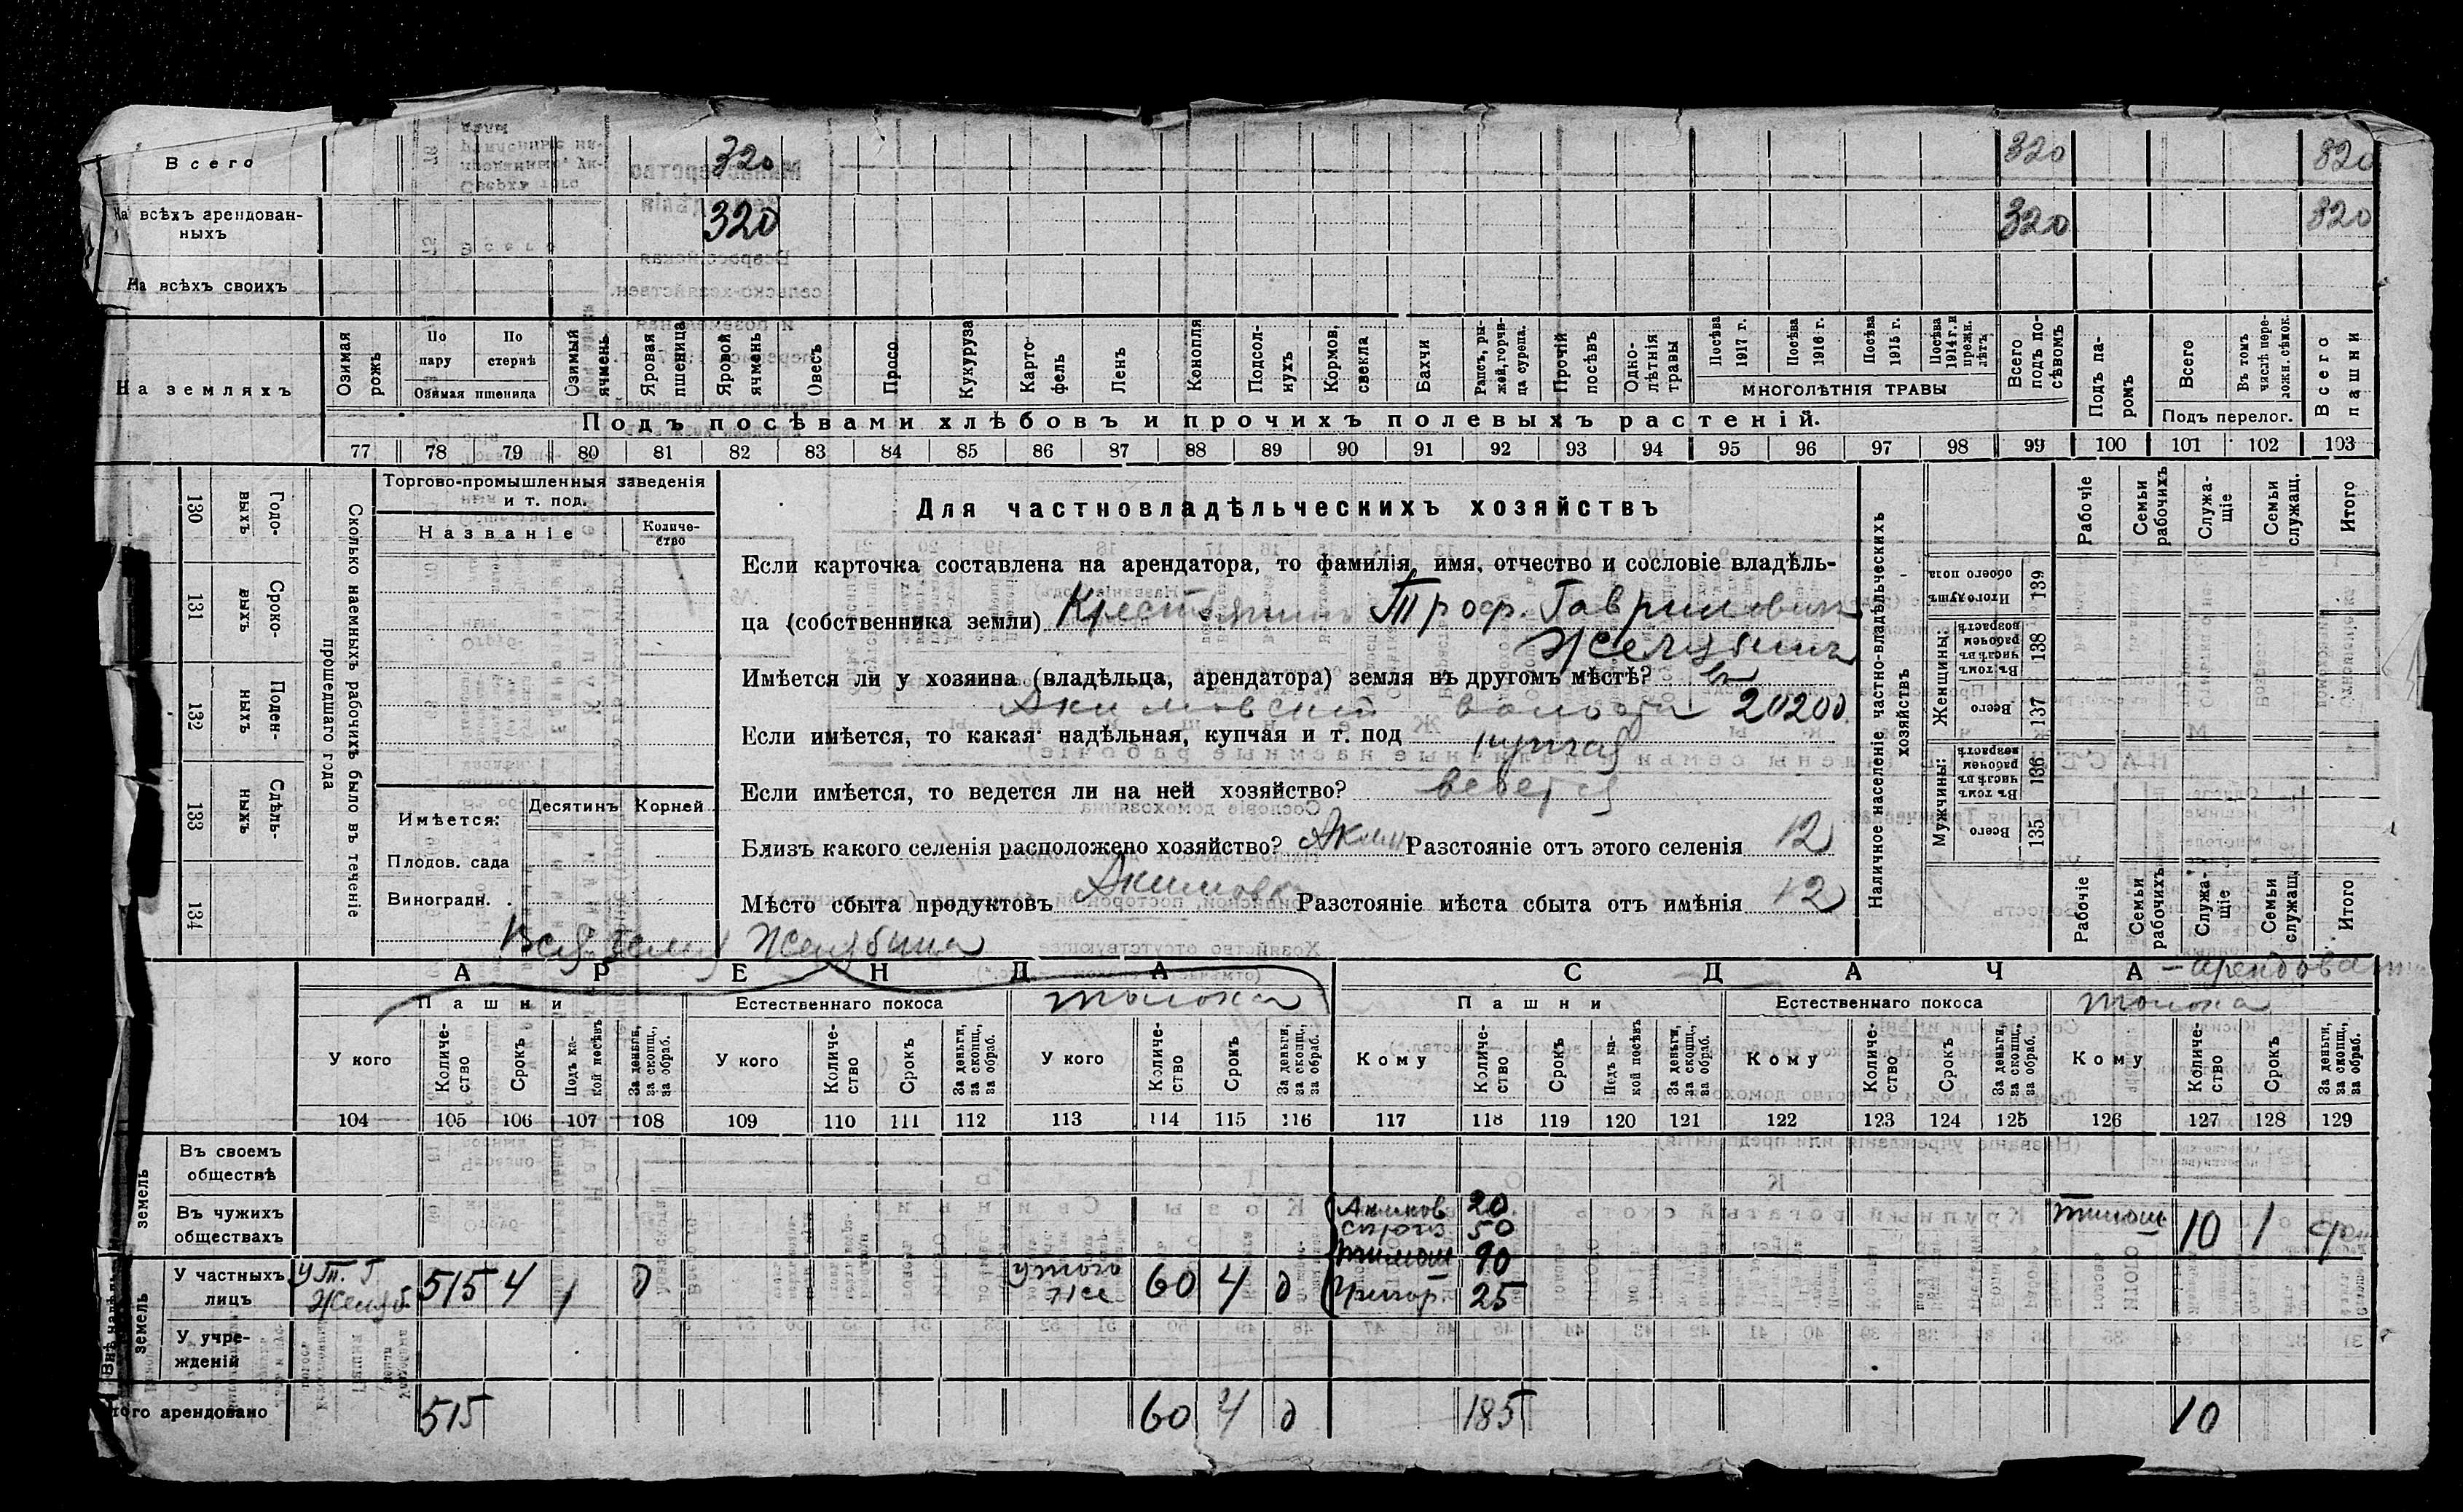 Всего 320 320 320
На всѣхъ арендован-
ныхъ 320 320 320
На всѣхъ своихъ
На земляхъ
Озимая рожь
По пару
По стернѣ
Озимая пшеница
Озимый ячмень
Яровая пшеница
Яровой ячмень
Овесъ
Просо
Кукуруза
Карто-
фель
Ленъ
Конопля
Подсол-
нухъ
Кормов.
свекла
Бахчи
Рапсъ, ры-
жей, горчи-
ца сурепа.
Прочій
посѣвъ
Одно-
лѣтнія
травы
Посѣва
1917 г.
Посѣва
1916 г.
Посѣва
1915 г.
Посѣва
1914 г. и
прежн.
лѣтъ
МНОГОЛѢТНІЯ ТРАВЫ
Всего
подъ по-
сѣвомъ
Подъ па-
ромъ
Всего
Въ томъ
числѣ пере-
ложн. сѣнок.
Подъ перелог.
Всего
пашни
Подъ посѣвами хлѣбовъ и прочихъ полевыхъ растеній.
77 78 79 80 81 82 83 84 85 86 87 88 89 90 91 92 93 94 95 96 97 98 99 100 101 102 103
130 131 132 133 134
Годо-
выхъ
Сроко-
выхъ
Поден-
ныхъ
Сдѣль-
ныхъ
Сколько наемныхъ рабочихъ было въ теченіе
прошедшаго года
Торгово-промышленныя заведенія
и т. под.
Названіе
Количе-
ство
Имѣется:
Десятинъ Корней
Плодов. сада
Виноградн.
Для частновладѣльческихъ хозяйствъ
Если карточка составлена на арендатора, то фамилія, имя, отчество и сословіе владѣль-
ца (собственника земли) Крестьянинъ Троф. Гаврилович
Имѣется ли у хозяина (владѣльца, арендатора) земля въ другомъ мѣстѣ? въ
Акимовской волости
Если имѣется, то какая: надѣльная, купчая и т. под купчая
Если имѣется, то ведется ли на ней хозяйство? ведется
Близъ какого селенія расположено хозяйство? Аким Разстояніе отъ этого селенія 12
Мѣсто сбыта продуктовъ Акимовка Разстояніе мѣста сбыта отъ имѣнія 12
Наличное населеніе частно-владѣльческихъ
хозяйствъ
Рабочіе
Семьи
рабочихъ
Служа-
щіе
Семьи
служащ.
Итого
Итого душъ
обоего пола
139
Женщины:
Въ томъ
числѣ въ
рабочемъ
возрастѣ
138
Всего
137
Мужчины:
Въ томъ
числѣ въ
рабочемъ
возрастѣ
136
Всего
135
Рабочіе
Семьи
рабочихъ
Служа-
щіе
Семьи
служащ.
Итого
АРЕНДА
СДАЧА
Пашни
Естественнаго покоса
толока
Пашни
Естественнаго покоса
толока
У кого
Количе-
ство
Срокъ
Подъ ка-
кой посѣвъ
За деньги,
за скопщ.,
за обраб.
У кого
Количе-
ство
Срокъ
За деньги,
за скопщ.,
за обраб.
У кого
Количе-
ство
Срокъ
За деньги,
за скопщ.,
за обраб.
Кому
Количе-
ство
Срокъ
Подъ ка-
кой посѣвъ
За деньги,
за скопщ.,
за обраб.
Кому
Количе-
ство
Срокъ
За деньги,
за скопщ.,
за обраб.
Кому
Количе-
ство
Срокъ
За деньги,
за скопщ.,
за обраб.
104 105 106 107 108 109 110 111 112 113 114 115 116 117 118 119 120 121 122 123 124 125 126 127 128 129
земель
Въ своемъ
обществѣ
Въ чужихъ
обществахъ
Акимов 20
50
Тимош 90
Тимош 10 1
земель
У частныхъ
лицъ
У Т. Г.
515 4 д
у того
же
60 4 д
Григор. 25
У учре-
жденій
арендовано 515 60 4 д 185 10